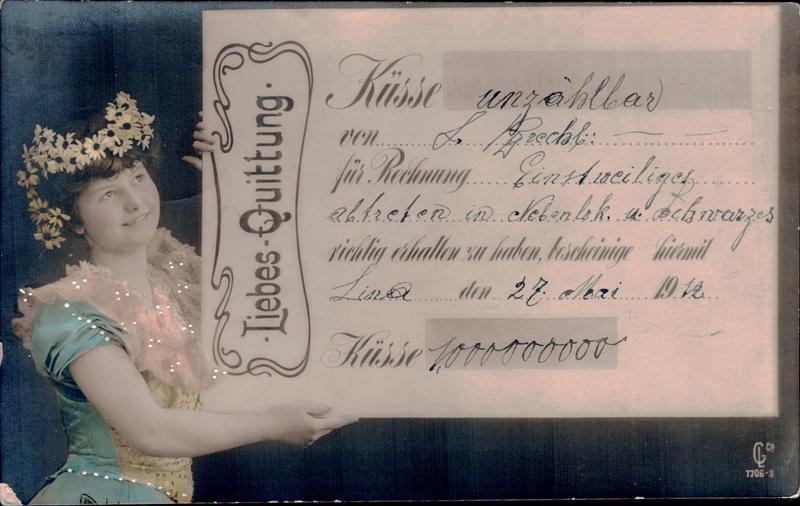 Liebes-Quittung.
Küsse unzählbar
von L.
für Rechnung Einstweiliges
abtreten in Nebenlok. u. Schwarzes
richtig erhalten zu haben, bescheinige hiermit
Lina den 27. Mai 1912
Küsse 1,000000000
Co
7706-3